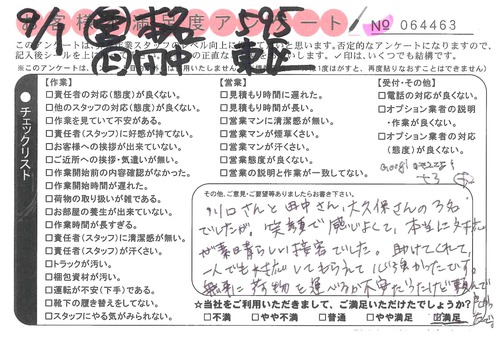 お客様満足度アンケート
No 064463
9/1
595
田中
東
このアンケートは、
否定的なアンケートになりますので、
記入後シールを上に
の正直な
します。✓印は、いくつでも結構です。
チェックリスト
【作業】
□責任者の対応(態度)が良くない。
□他のスタッフの対応(態度)が良くない。
□作業を見ていて不安がある。
□責任者(スタッフ)に好感が持てない。
□お客様への挨拶が出来ていない。
□ご近所への挨拶・気遣いが無い。
□作業開始前の内容確認がなかった。
□作業開始時間が遅れた。
□荷物の取り扱いが雑である。
□お部屋の養生が出来ていない。
□作業時間が長すぎる。
□責任者(スタッフ)に清潔感が無い。
□責任者(スタッフ)が汗くさい。
□トラックが汚い。
□梱包資材が汚い。
□運転が不安(下手)である。
□靴下の履き替えをしてない。
□スタッフにやる気がみられない。
【営業】
□見積もり時間に遅れた。
□見積もり時間が長い。
□営業マンに清潔感が無い。
□営業マンが煙草くさい。
□営業マンが汗くさい。
□営業態度が良くない。
□営業の説明と作業が一致してない。
【受付・その他】
□電話の対応が良くない。
□オプション業者の説明・作業が良くない。
□オプション業者の対応(態度)が良くない。
その他、ご意見・ご要望等ありましたらお書き下さい。
川口さんと田中さん、大久保さんの3名
でしたが、笑顔で感じよくて、本当に対応
が素晴らしい接客でした。助けてくれて、
一人でも対応してもらえて心強かったです。
無事に荷物を運べるか不安だったけど頼んで
よかったです。
☆当社をご利用いただきまして、ご満足いただけたでしょうか?
□不満 □やや不満 □普通 □やや満足 ☑満足